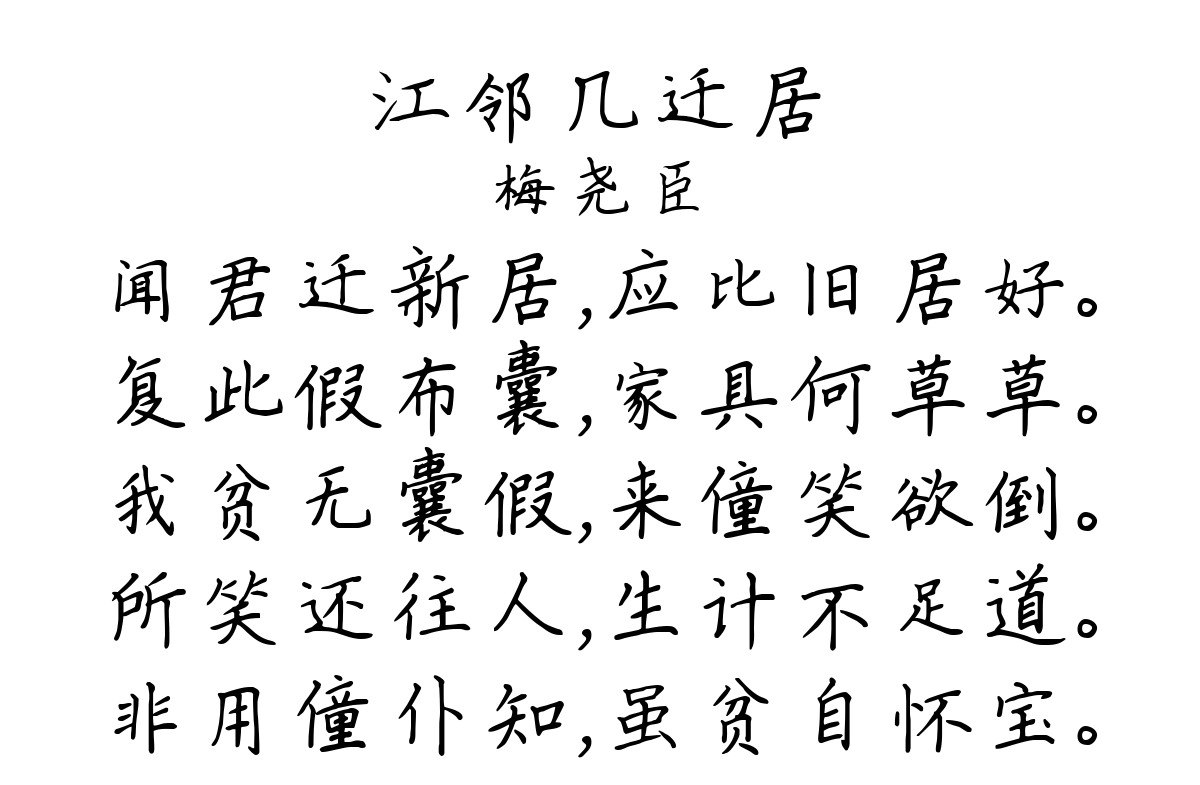 江邻几迁居
梅尧臣
闻君迁新居,应比旧居好。
复此假布囊,家具何草草。
我贫无囊假,来僮笑欲倒。
所笑还往人,生计不足道。
非用僮仆知,虽贫自怀宝。